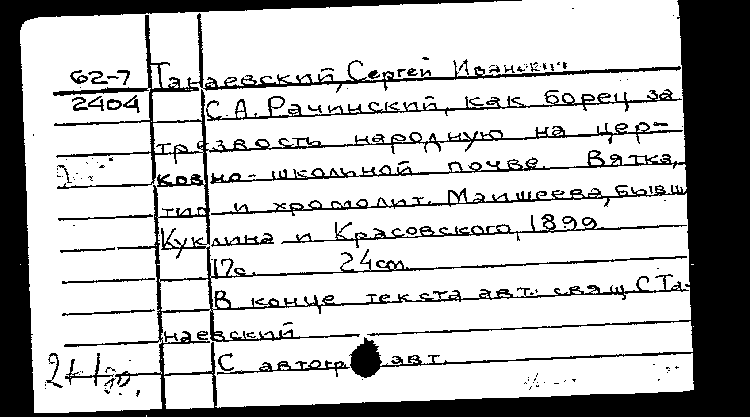 62-7 Танаевский, Сергей Иванович
2404 С.А. Рачинский, как борец за
трезвость народную на цер-
ковно-школьной почве. Вятка,
тип и хромолит. Маишеева, бывш
Куклина и Красовского, 1899.
17с. 24см.
В конце текста авт: свящ С Та-
наевский
С автогр авт.